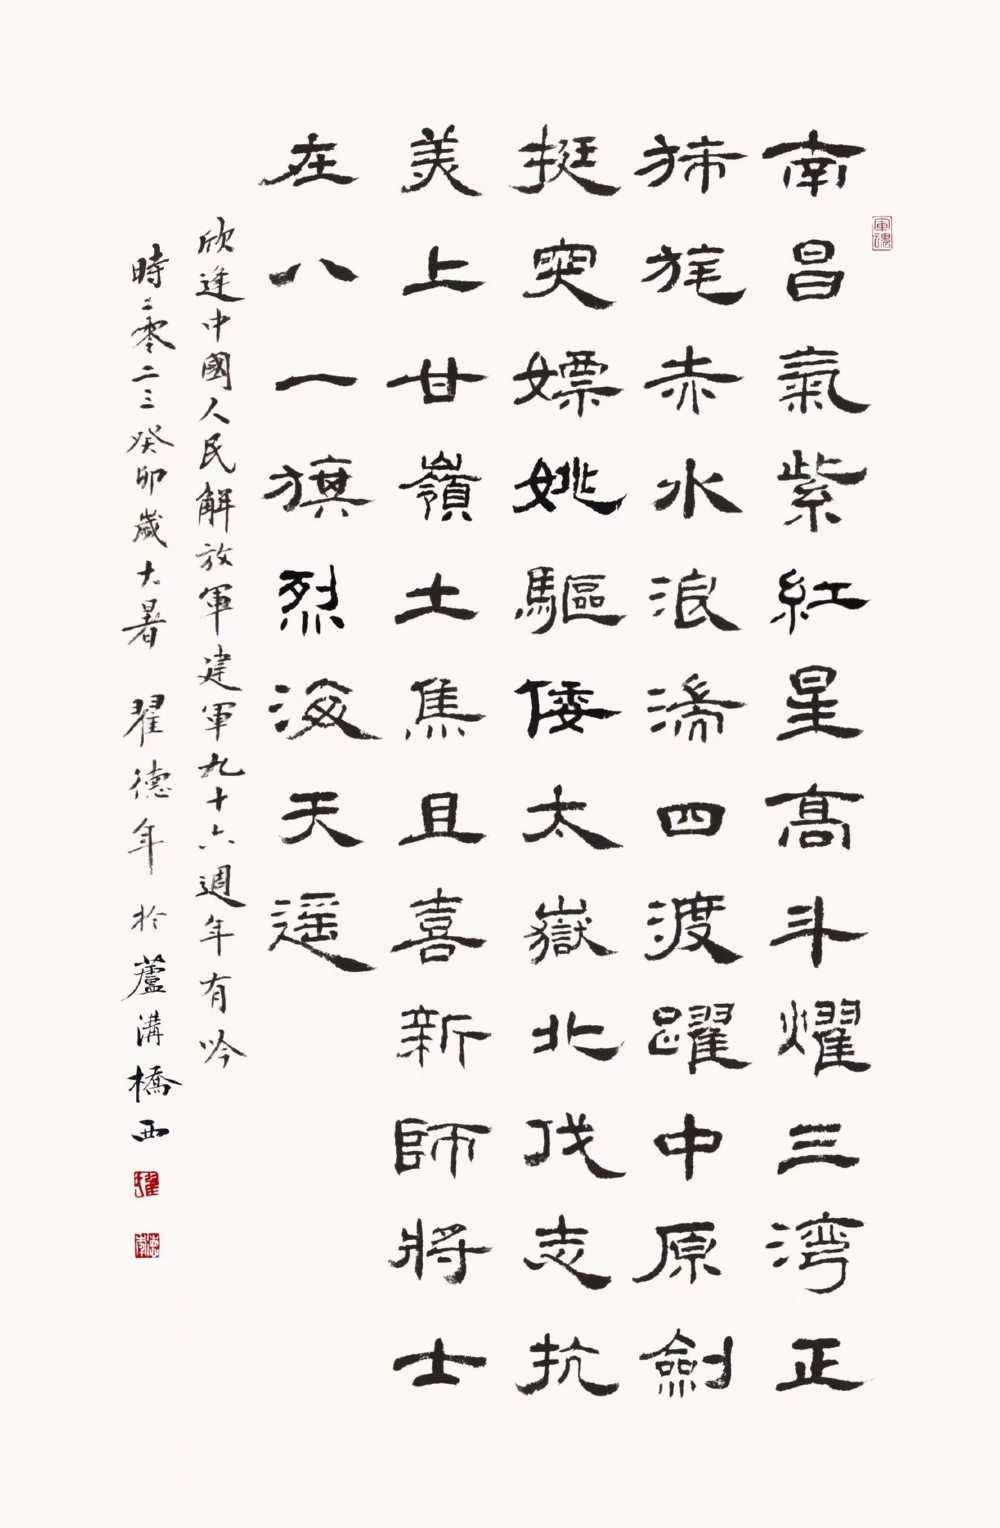 軍魂
南昌氣紫紅星髙斗耀三湾正
旆旄赤水浪四渡躍中原劍
挺突嫖姚驅倭太嶽北伐志抗
美上甘嶺土焦且喜新師將士
在八一旗烈海天遥
欣逢中國人民解放軍建軍九十六週年有吟
時二零二三癸卯歲大暑 翟德年於蘆溝橋西
翟